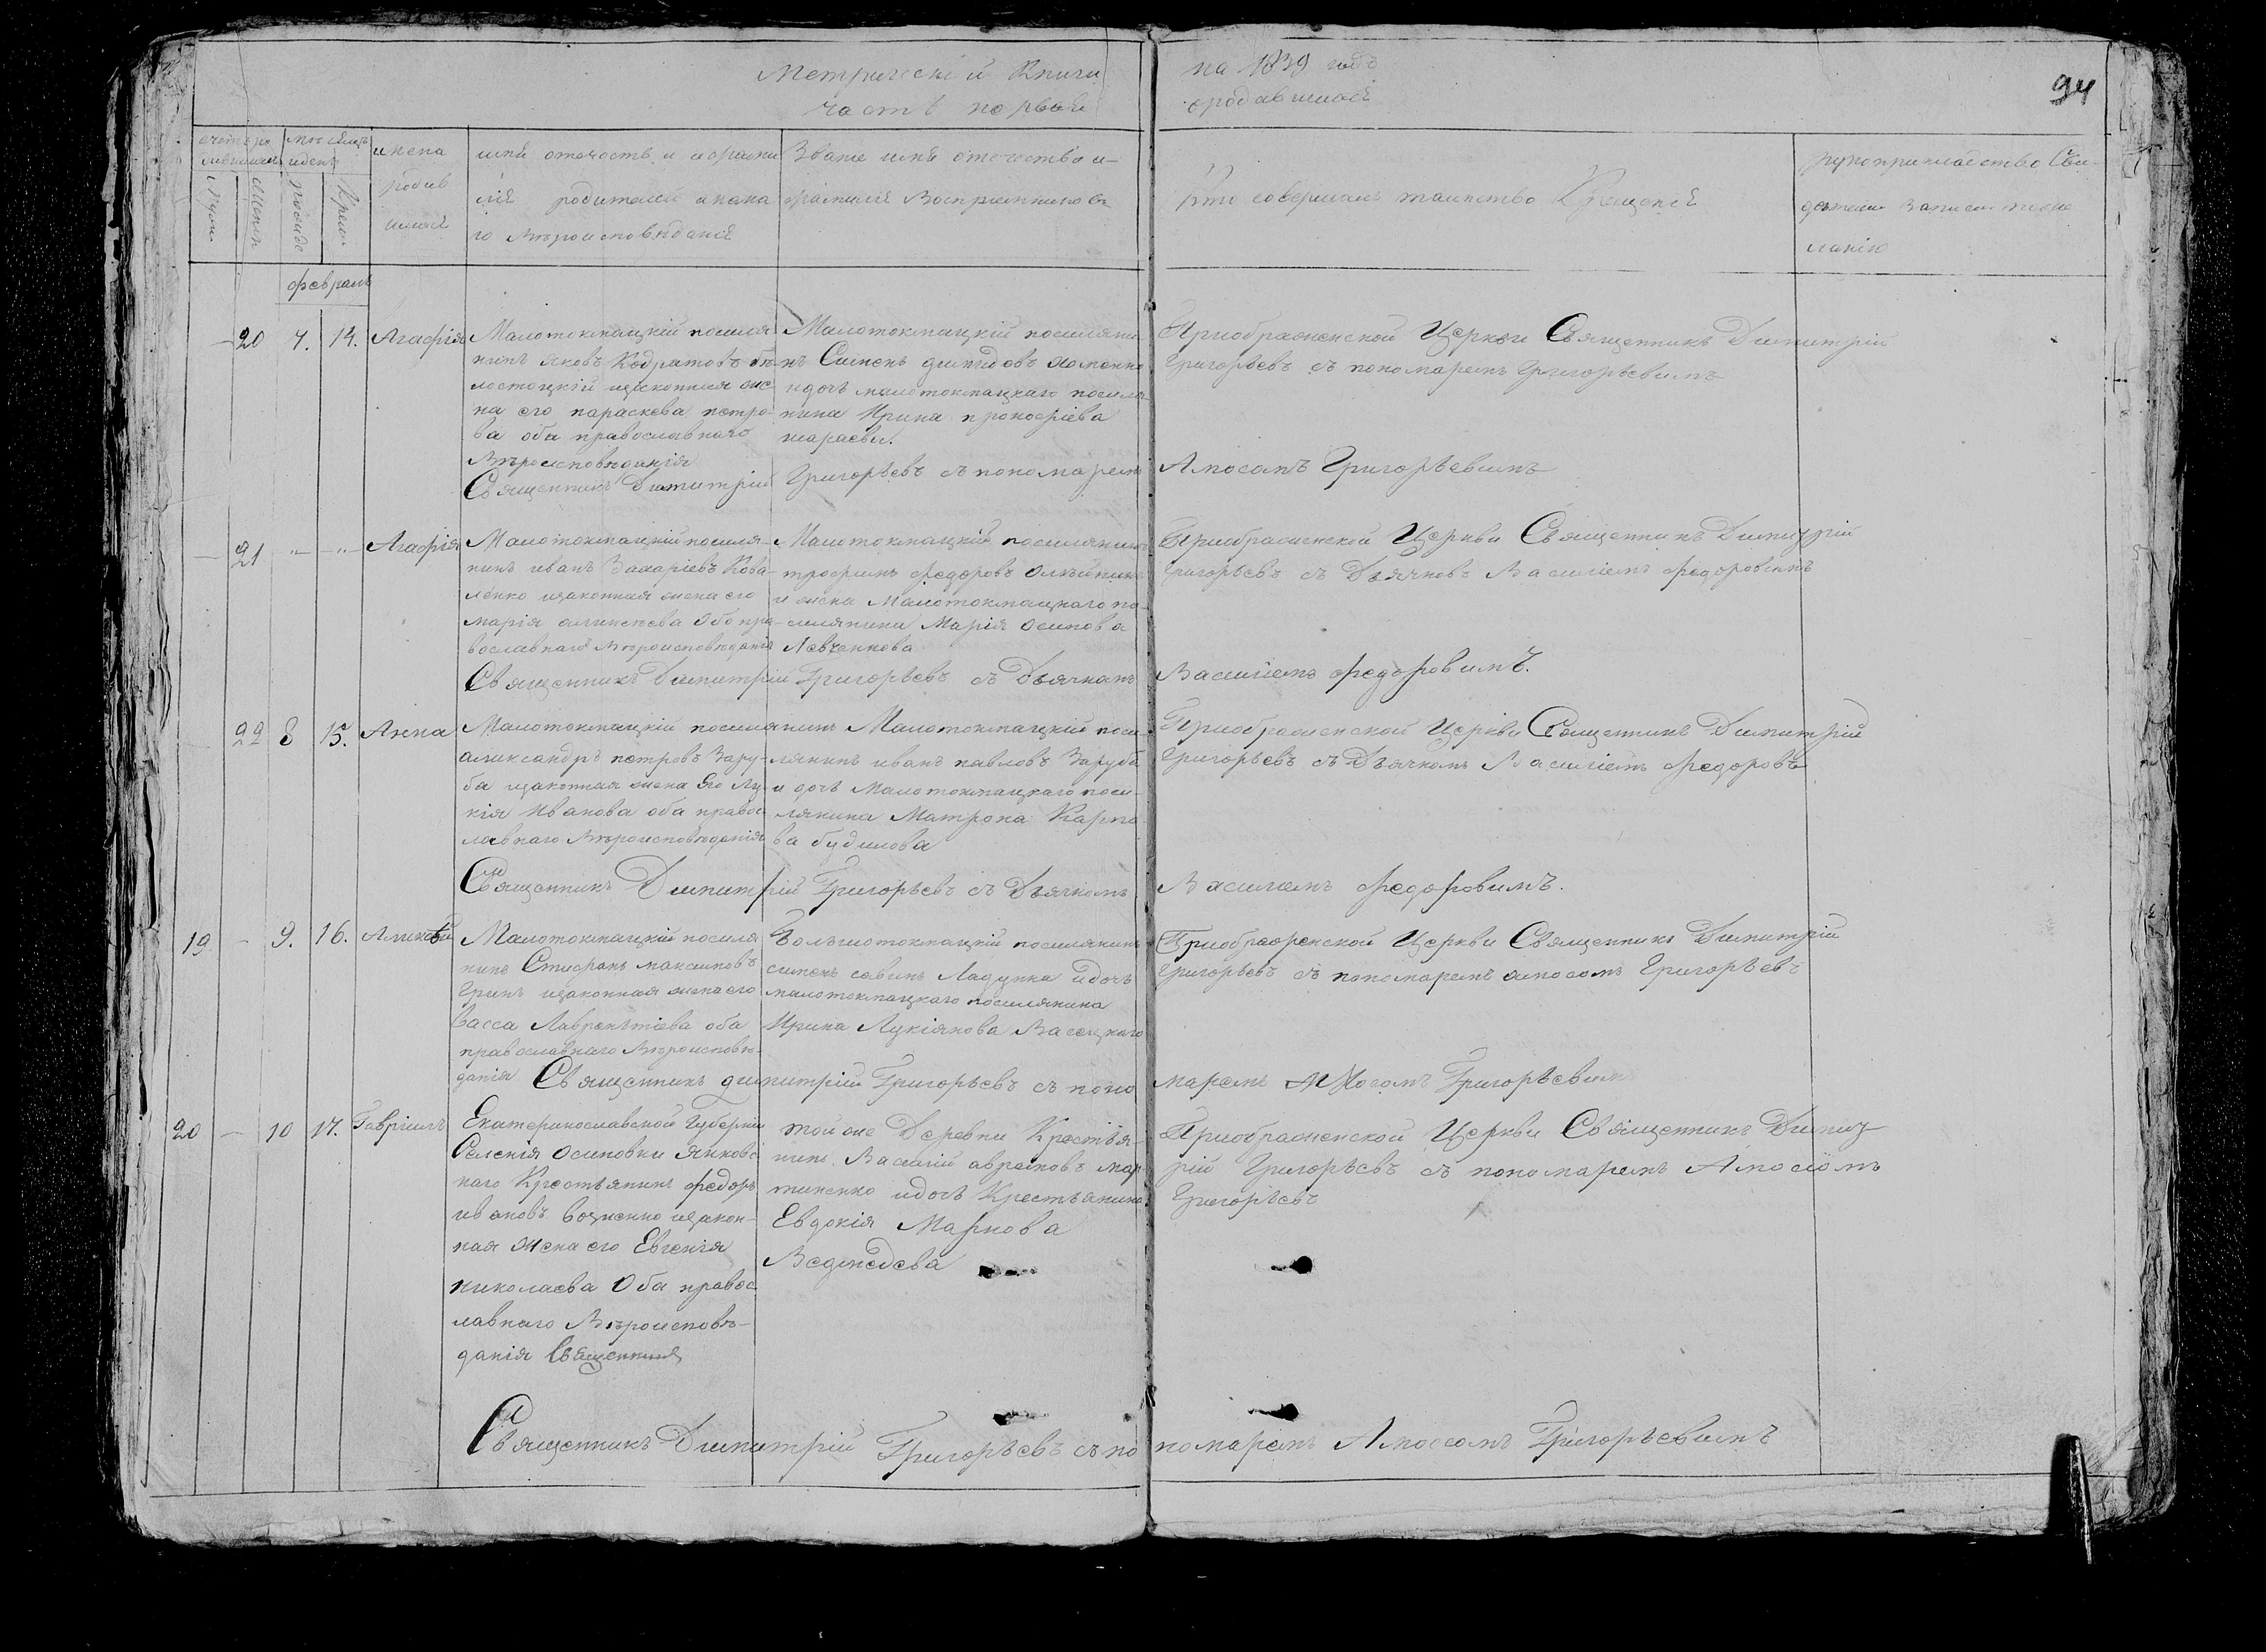 Метрической Книги на 1839 годъ
94
часть первая
ородившихся
имена
родив
шихся
имя отечество и фрами
лія родителей и кака
го вѣроисповѣданія
Званіе имя отечество и
фамилія Воспріемниковъ
Кто совершалъ таинство Крещенія
рукоприкладство Сви-
дѣтелей записи
ланію
февраль
20 7. 14. Агафія
Малотокмацкій поселя
нинъ яковъ Кодратовъ
изаконная же
на его параскева петро-
ва оба православнаго
Вѣроисповѣданія
Малотокмацкій поселяни
нъ Сименъ
идочъ малотокмацкаго поселя-
нина Ирина прокофіева
Приображенской Церкви Священникъ Димитрій
Григорьевъ съ пономаремъ Григорьевимъ
Священникъ Димитрій Григорьевъ съ пономаремъ Амосомъ Григорьевимъ
21 " " Агафія
Малотокмацкій поселя-
нинъ иванъ Захаріевъ Кова-
ленко изаконная жена его
марія аликсѣева обо пра-
вославнаго вѣроисповѣданія
Малотокмацкій поселянинъ
трофимъ федоровъ Олѣйникъ
и жена Малотокмацкаго по-
силянина Марія осипова
Левченкова
Приображенской Церкви Священникъ Димитрій
Григорьевъ съ Дьячковъ Василіемъ федоровимъ
Священникъ Димитрій Григорьевъ съ Дьячкомъ Василіемъ федоровимъ.
22 8 15. Анна
Малотокмацкій поселянинъ
александръ петровъ Зару-
ба изаконная жена его Лу-
кія Иванова оба правос
лавнаго Вѣроисповѣданія
Малотокмацкій посе-
лянинъ иванъ павловъ Заруба
и дочъ Малотокмацкаго посе-
лянина Матрона Карпо
ва будилова
Приображенской Церкви Священникъ Димитрій
Григорьевъ съ Дьячкомъ Василіемъ федоровъ
Священникъ Димитрій Григорьевъ съ Дьячкомъ Василіемъ федоровимъ.
19 - 9. 16. Аликсѣй
Малотокмацкій поселя
нинъ Стефанъ максимовъ
Гринь изаконная жена его
Васса Лаврентіева оба
православнаго Вѣроисповѣ-
данія
Большотокмацкій поселянинъ
сименъ савинъ Ладунка идочъ
малотокмацкаго поселянина
Ирина Лукіянова Васецкаго
Приображенской Церкви Священникъ Димитрій
Григорьевъ съ пономаремъ амосомъ Григорьевъ
Священникъ димитрій Григорьевъ съ поно маремъ Амосомъ Григорьевим
20 - 10 17. Гавріилъ
Екатеринославской Губерніи
Селенія Осиповки
наго Крестьянинъ федоръ
ивановъ изакон-
ная жена его Евгенія
николаева Оба правос
лавнаго Вѣроисповѣ-
данія Священник
тойже Деревни Крестья-
нинъ Василій авраковъ мар
тиненко идочъ Крестьянина
Евдокія Маркова
Ведмедева
Приображенской Церкви Священникъ Димит
рій Григорьевъ съ пономаремъ Амосомъ
Григорьевъ
Священникъ Димитрій Григорьевъ съ по номаремъ Амосомъ Григорьевимъ